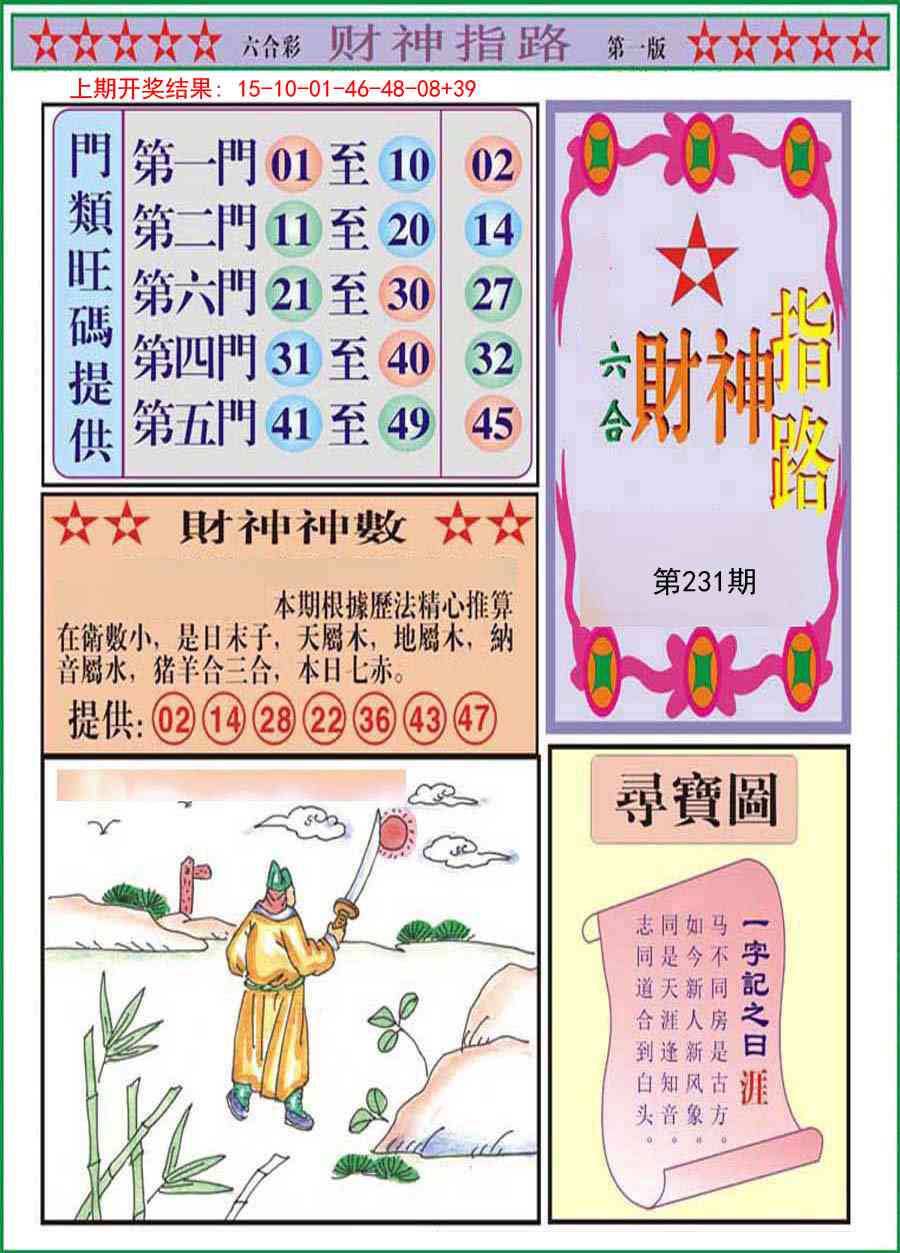 六合彩 财神指路 第一版
上期开奖结果: 15-10-01-46-48-08+39
門類旺碼提供
第一門 01 至 10 02
第二門 11 至 20 14
第六門 21 至 30 27
第四門 31 至 40 32
第五門 41 至 49 45
六合
財神
指路
第231期
財神神數
本期根據歷法精心推算
在衛數小，是日末子，天屬木，地屬木，納
音屬水，猪羊合三合，本日七赤。
提供: 02 14 28 22 36 43 47
尋寶圖
一字記之曰 涯
马不同房是古方。
如今新人新风象。
同是天涯逢知音。
志同道合到白头。